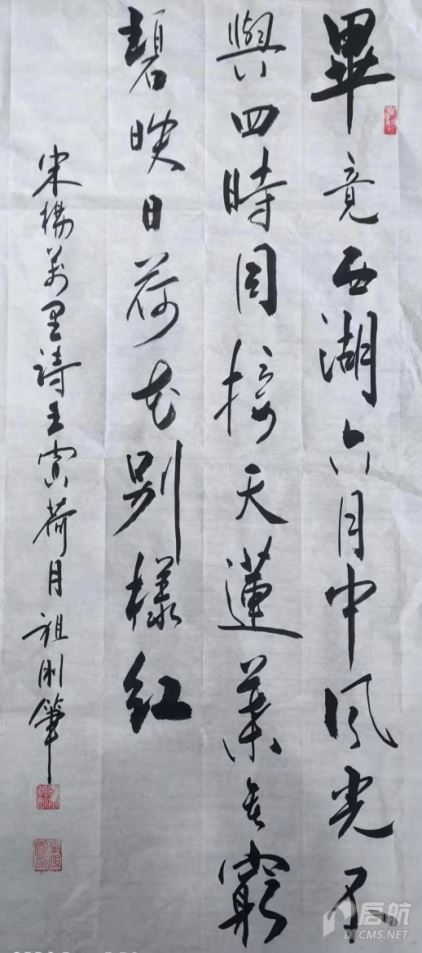 畢竟西湖六月中风光不
與四時同接天蓮葉无窮
碧映日荷花别樣红
宋楊万里诗壬寅荷月祖刚筆
启航
DTCMS.NET